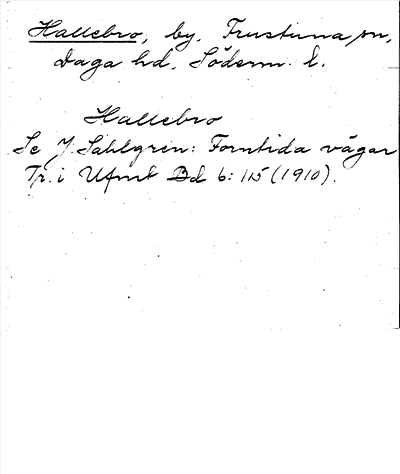 Hallebro, by, Frustuna sn,
Daga hd, Söderm. l.
Hallebro
Se J. Sahlgren: Forntida vägar
Tr. i Ufmt Bd 6: 115 (1910).